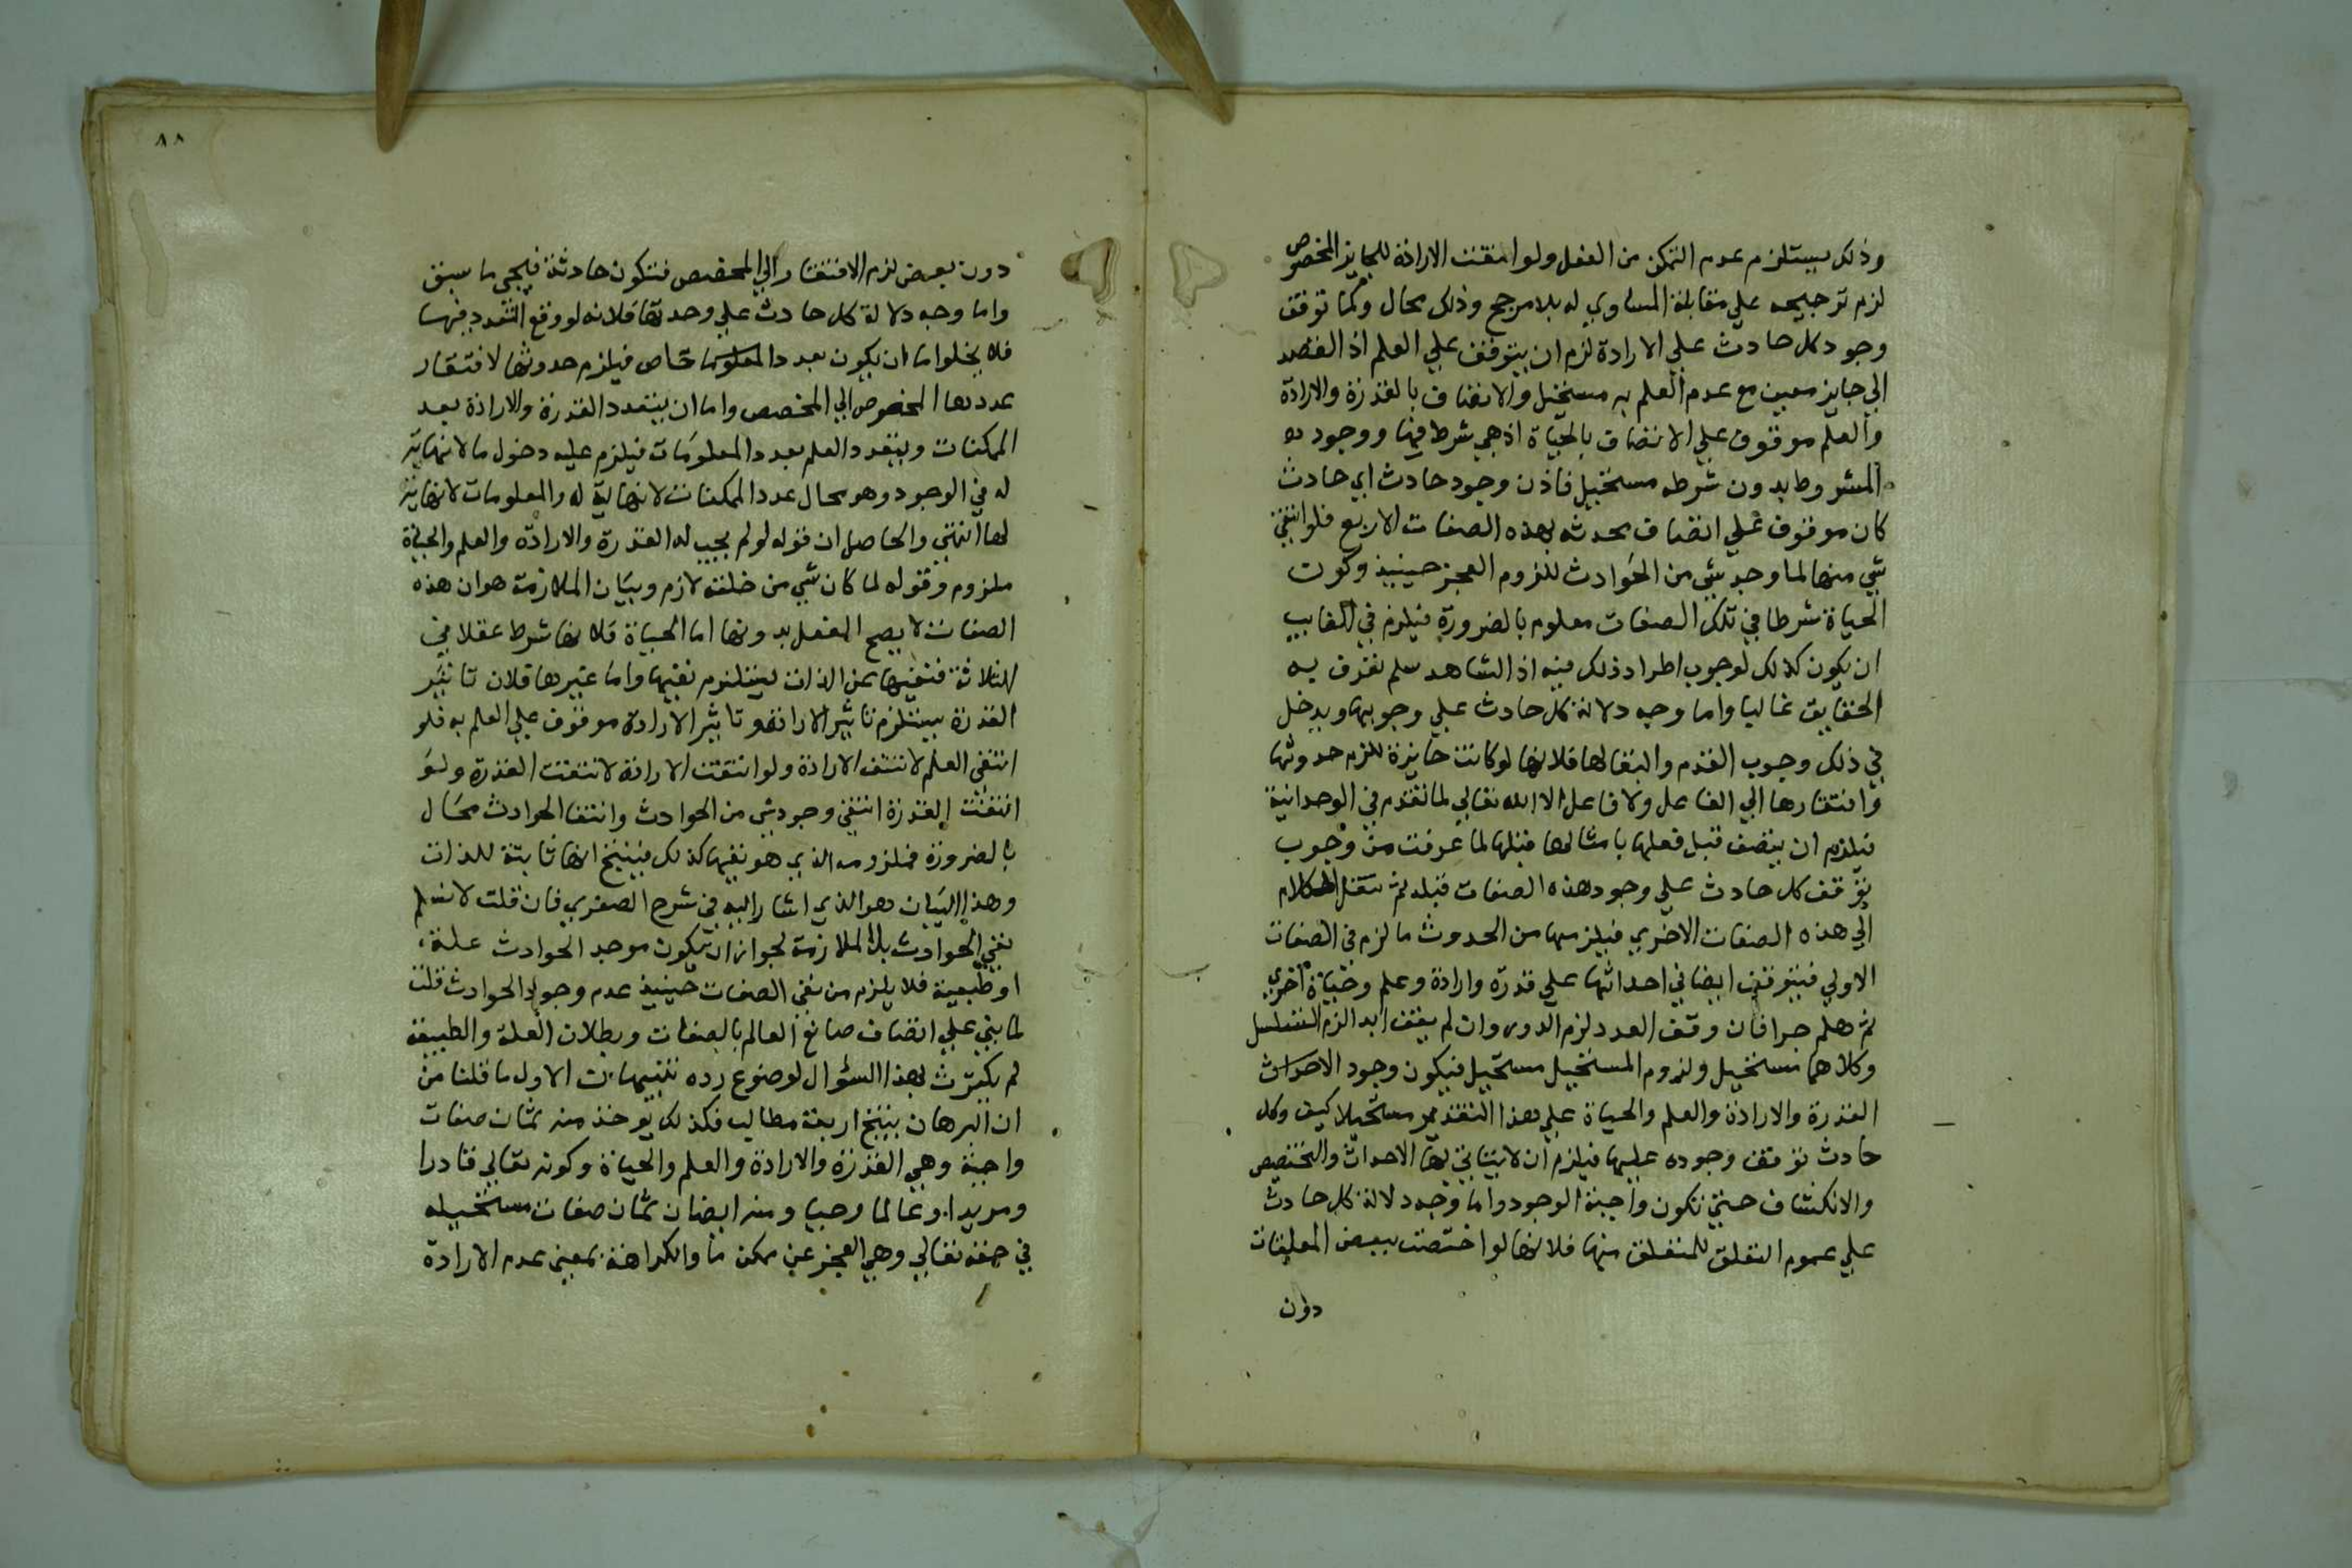 وذلك يستلزم عدم التمكن من الفعل ولو انتفت الارادة للجايز المخصوص
لزم ترجيحه علي مقابله المساوي له بلا مرجح وذلك محال وكما توقف
وجود كل حادث علي الارادة لزم ان يتوقف علي العلم اذ القصد
الي جايز معين مع عدم العلم به مستحيل والاتصاف بالقدرة والارادة
والعلم موقوف علي الاتصاف بالحياة اذ هي شرط فيها ووجود
المشروط بدون شرطه مستحيل فاذن وجود حادث اي حادث
كان موقوف علي اتصاف محدثه بهذه الصفات الاربع فلو انتفي
شي منها لما وجد شي من الحوادث للزوم العجز حينيذ وكون
الحياة شرطا في تلك الصفات معلوم بالضرورة فيلزم في الغايب
ان يكون كذلك لوجوب اطراد ذلك فيه اذ الشاهد سلم نعرف به
الحقايق غالبا واما وجه دلالة كل حادث علي وجوبها ويدخل
في ذلك وجوب القدم والبقا لها فلانها لو كانت جايزة للزم حدوثها
وافتقارها الي الفاعل ولا فاعل الا الله تعالي لما تقدم في الوحدانية
فيلزم ان يتصف قبل فعلها بامثالها قبلها لما عرفت من وجوب
توقف كل حادث علي وجود هذه الصفات قبله ثم ننقل الكلام
الي هذه الصفات الاخري فيلزمها من الحدوث ما لزم في الصفات
الاولي فيتوقف ايضا في احداثها علي قدرة وارادة وعلم وحياة اخري
ثم هلم جرا فان وقف العدد لزم الدور وان لم يقف ابدا لزم التسلسل
وكلاهما مستحيل ولزوم المستحيل مستحيل فيكون وجود الاحداث
القدرة والارادة والعلم والحياة علي هذا التقدير مستحيلا كيف وكل
حادث توقف وجوده عليها فيلزم ان لا يتاتي بها الاحداث والتخصيص
والانكشاف حتي تكون واجبة الوجود واما وجه دلالة كل حادث
علي عموم التعلق للمتعلق منها فلانها لو اختصت ببعض المعلقات
دون
٨٨
دون بعض لزم الافتقار الي المخصص فتكون حادثة فيجي ما سبق
واما وجه دلالة كل حادث علي وحدتها فلانه لو وقع التعدد فيها
فلا يخلوا اما ان يكون بعدد المعلوما خاص فيلزم حدوثها لافتقار
عددها المخصوص الي المخصص واما ان يتعدد القدرة والارادة بعدد
الممكنات ويتعدد العلم بعدد المعلومات فيلزم عليه دخول ما لا نهاية
له في الوجود وهو محال عدد الممكنات لا نهاية له والمعلومات لا نهاية
لها انتهي والحاصل ان قوله لو لم يجب له القدرة والارادة والعلم والحياة
ملزوم وقوله لما كان شي من خلقه لازم وبيان الملازمة هو ان هذه
الصفات لا يصح الفعل بدونها اما الحياة فلانها شرط عقلا في
الثلاثة فنفيها عن الذات يستلزم نفيها واما غيرها فلان تاثير
القدرة يستلزم تاثير الارادة وتاثير الارادة موقوف علي العلم به فلو
انتفي العلم لانتفت الارادة ولو انتفت الارادة لانتفت القدرة ولو
انتفت القدرة انتفي وجود شي من الحوادث وانتفا الحوادث محال
بالضرورة فملزومه الذي هو نفيها كذلك فينتج انها ثابتة للذات
وهذا البيان هو الذي اشار اليه في شرح الصغري فان قلت لا نسلم
نفي الحوادث بل الملازمة لجواز ان يكون موجد الحوادث علة
او طبيعية فلا يلزم من نفي الصفات حينيذ عدم وجود الحوادث قلت
لما بني علي اتصاف صانع العالم بالصفات وبطلان العلة والطبيعة
لم يكترث بهذا السؤال لوضوع رده تنبيهات الاول ما قلنا من
ان البرهان ينتج اربعة مطالب فكذلك يوخذ منه ثمان صفات
واجبة وهي القدرة والارادة والعلم والحياة وكونه تعالي قادرا
ومريدا وعالما وحيا ومنه ايضا ثمان صفات مستحيله
في حقه تعالي وهي العجز عن ممكن ما والكراهة بمعني عدم الارادة